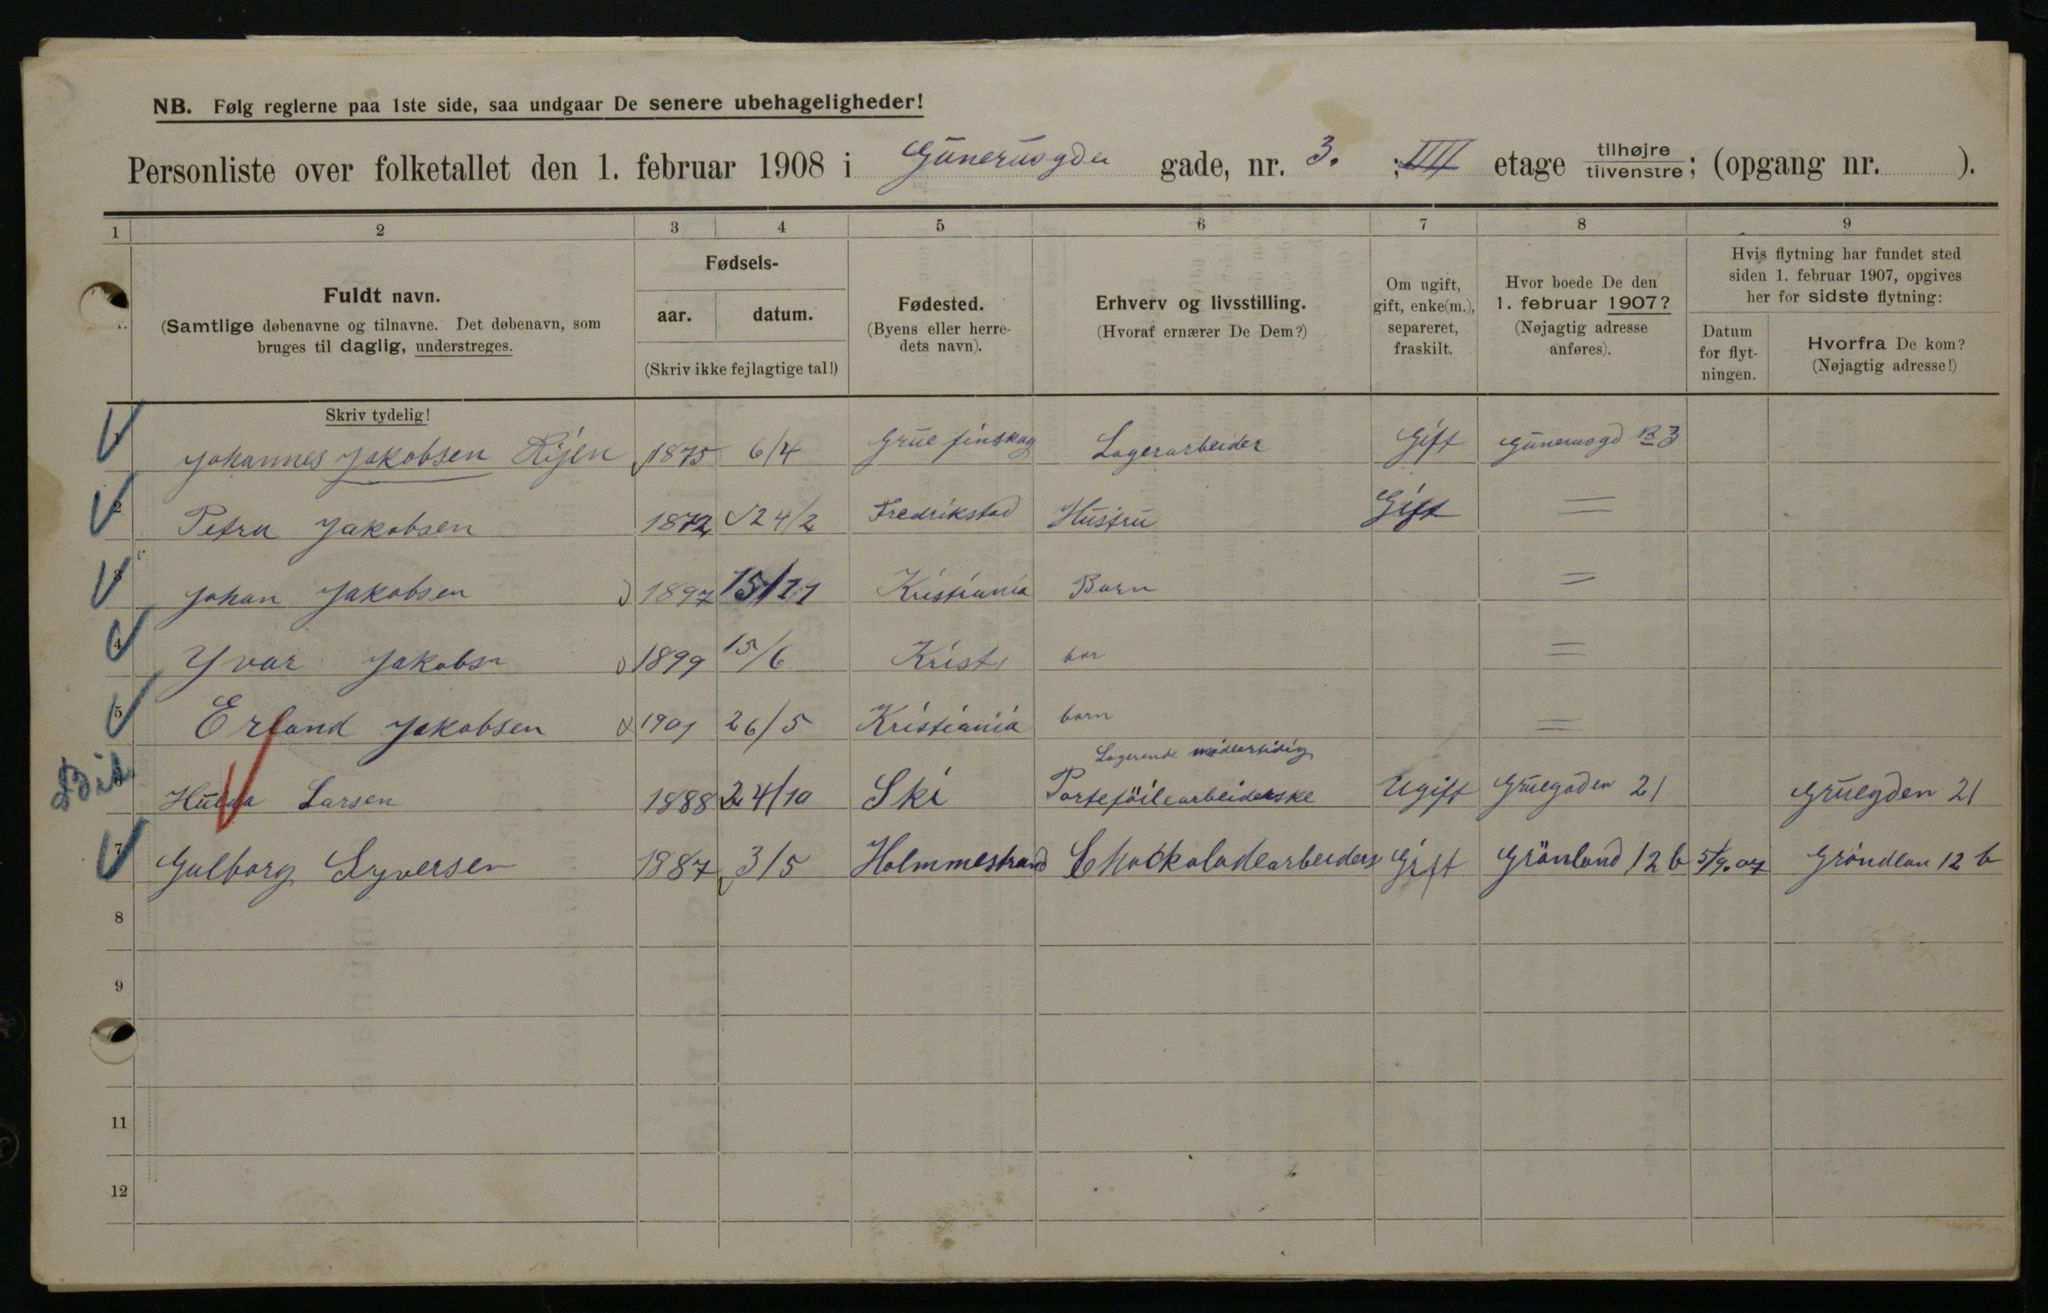 NB. Følg reglerne paa 1ste side, saa undgaar De senere ubehageligheder!
Personliste over folketallet den 1. februar 1908 i Gunerusgden gade, nr. 3. ; IIII etage tilhøjre tilvenstre; (opgang nr. ).
1 2 3 4 5 6 7 8 9
Fuldt navn.
(Samtlige døbenavne og tilnavne. Det døbenavn, som
bruges til daglig, understreges.
Fødsels-
aar. datum.
(Skriv ikke fejlagtige tal!)
Fødested.
(Byens eller herre-
dets navn).
Erhverv og livsstilling.
(Hvoraf ernærer De Dem?)
Om ugift,
gift, enke(m.),
separeret,
fraskilt.
Hvor boede De den
1. februar 1907?
(Nøjagtig adresse
anføres).
Hvis flytning har fundet sted
siden 1. februar 1907, opgives
her for sidste flytning:
Datum
for flyt-
ningen.
Hvorfra De kom?
(Nøjagtig adresse!)
Skriv tydelig!
Johannes Jakobsen 1875 6/4 Grue finskog Lagerarbeider Gift Gunerusgd 3
2 Petra Jakobsen 1872 24/2 Fredrikstad Hustru Gift =
3 Johan Jakobsen 1897 15/11 Kristiania Barn =
4 Yvar Jakobsn 1899 15/6 Krist bar =
5 Erland Jakobsen 1901 26/5 Kristiania barn =
Lagerende midlertidig
6 Hulda Larsen 1888 24/10 Ski Porteföilearbeiderske Ugift Gruegaden 21 Gruegden 21
7 Galborg Syversen 1887 3/5 Holmmestrand Chockoladearbeiders Gift Grönland 12 b 5/9.07 Gröndlan 12 b
8
9
11
12